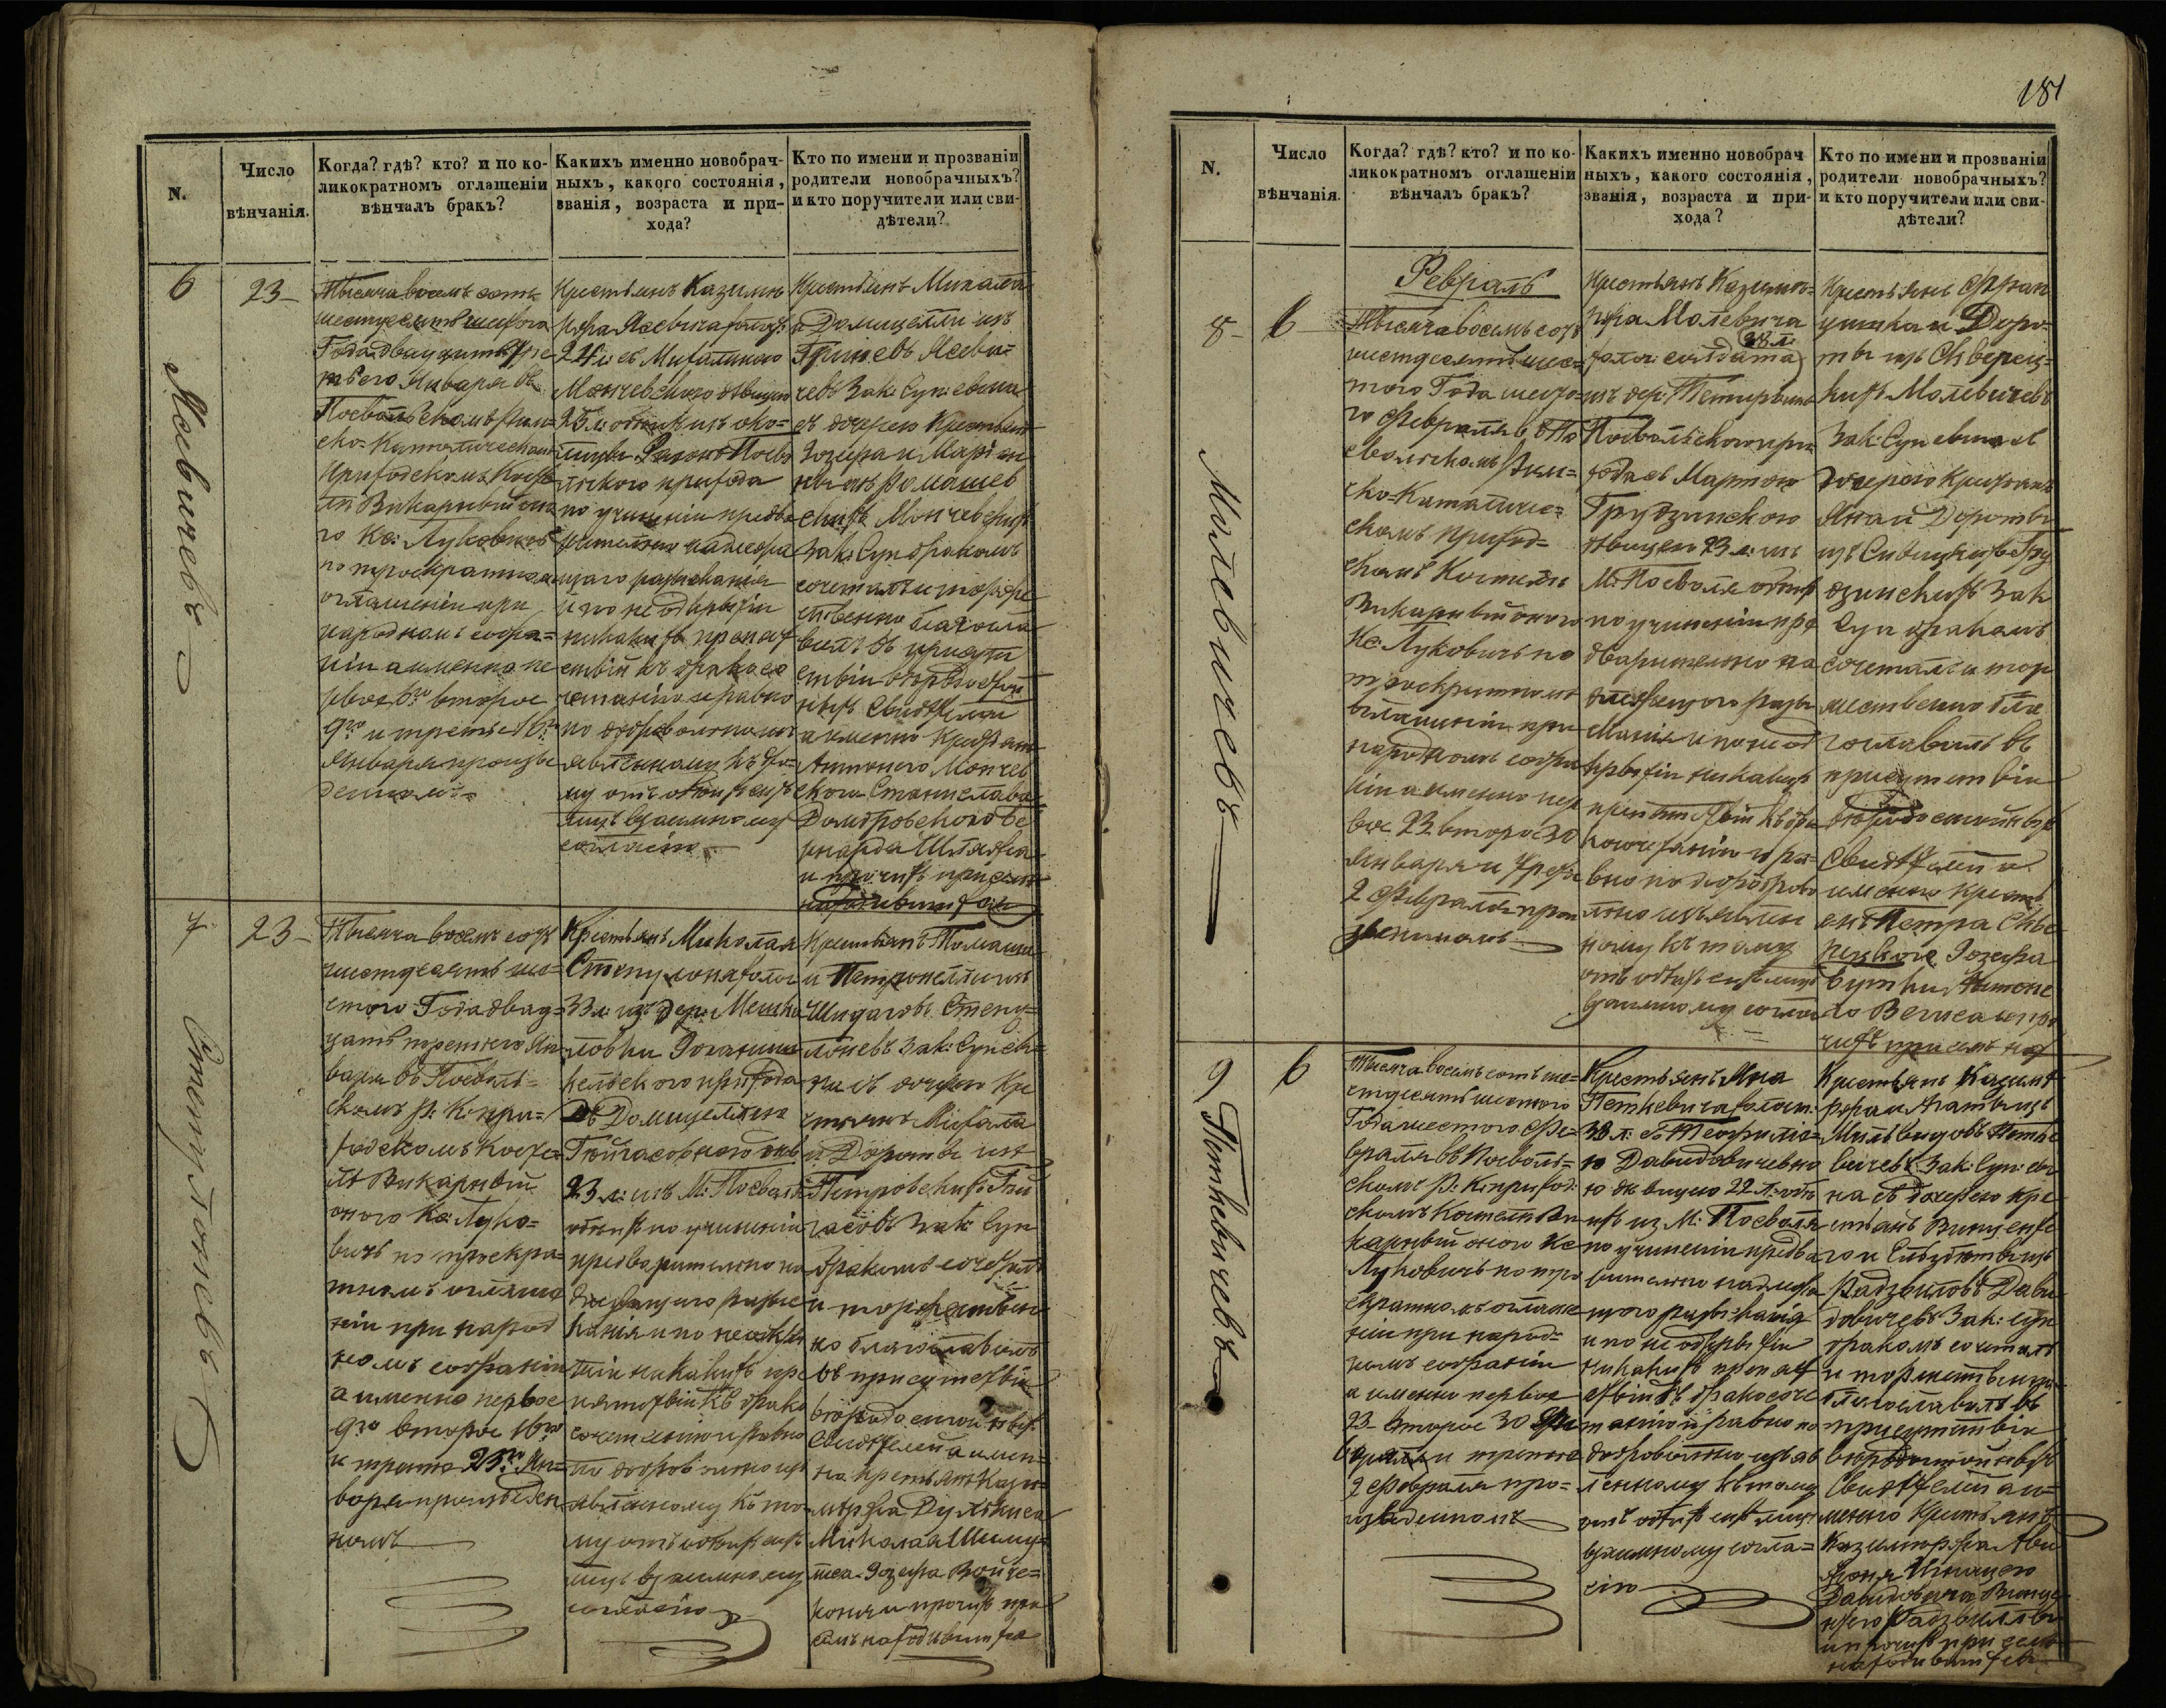 181
N.
Число
вѣнчанія.
Когда? гдѣ? кто? и по ко-
ликократномъ оглашеніи
вѣнчалъ бракъ?
Какихъ именно новобрач-
ныхъ, какого состоянія,
званія, возраста и при-
хода?
Кто по имени и прозванію
родители новобрачныхъ?
и кто поручители или сви-
дѣтели?
6
Ясевичевъ
23
Тысяча восемь сотъ
шестьдесятъ шестого
Года двадцать тре
тьего Января въ
Посвольскомъ Рим=
ско-Католическомъ
Приходскомъ Косте
лѣ Викарный он
го Кс: Луковичъ
по троекратном
оглашеніи при
народномъ собра=
ніи а именно пе
рвое 6го второе
9го и третье 16го
Января произве
деннымъ
Крестьянъ Казими
ра Ясевича холос:
24 л: съ Михалиною
Мончевскою дѣвицею
по учиненіи предва
рительно надлежа
щаго разысканія
и по не открытіи
никакихъ препят
ствій къ бракосо
четанію и равно
по добровольному
изъявленному къ то=
му отъ обоихъ сихъ
лицъ взаимному
согласію
Крестьянъ Михала
и Домицелли изъ
Ясеви=
чевъ Зак: Суп: сына
съ дочерью Крестьянъ
Іозефа и Маріан
ны изъ Ромашев
скихъ Мончевскихъ
Зак: Суп бракомъ
сочеталъ и торже
ственно благосло
вилъ въ присут
ствіи
свидѣтелей
а именно Крестьянъ
Антонего Мончев
скаго Станислава
Домбровскаго Бе
рнарда
и прочихъ при семъ
находившихся
7
Степулоневъ
23
Тысяча восемь сотъ
шестьдесятъ ше=
стого Года двад=
цать третьего Ян
варя въ Посволь=
скомъ Р: К: при=
ходскомъ Косте=
лѣ Викарный
оного Кс: Луко=
вичъ по троекра=
тномъ оглаше
ніи при народ
номъ собраніи
а именно первое
9го второе 16го
и третье 23го Ян=
варя произведен
номъ
Крестьянъ Миколая
Степулоня холос
33 л: изъ дер: Мешка
прихода
съ Домицеллею
23 л: изъ М: Посволя
обоихъ по учиненіи
предварительно на
длежащаго разыс
канія и по неоткры
тіи никакихъ пре
пятствій къ брако
сочетанію и равно
по добровольно изъ
явленному къ то=
му отъ обоихъ сихъ
лицъ взаимному
согласію
Крестьянъ Томаша
и Петронелли изъ
Степу=
лоневъ Зак: Суп сы
на съ дочерью Кре
стьянъ Михала
и Дороты изъ
Петровскихъ
Зак: Суп
бракомъ сочеталъ
и торжествен
но благословилъ
въ присутствіи
свидѣтелей а имен=
но крестьянъ Кази=
мира
Миколая
Іозефа Войте=
и прочихъ при
семъ находившихся
N.
Число
вѣнчанія.
Когда? гдѣ? кто? и по ко-
ликократномъ оглашеніи
вѣнчалъ бракъ?
Какихъ именно новобрач
ныхъ, какого состоянія,
званія, возраста и при-
хода?
Кто по имени и прозваніи
родители новобрачныхъ?
и кто поручители или сви-
дѣтели?
Февраль
8
Молевичевъ
6
Тысяча восемь сотъ
шестдесятъ шес=
того Года шесто=
го Февраля въ По
свольскомъ Рим=
ско-Католиче=
скомъ Приход=
скомъ Костелѣ
Викарный оного
Кс: Луковичъ по
троекратномъ
оглашеніи при
народномъ собра
ніи а именно пер
вое 23 второе 30
Января и третье
2 Февраля прои
зведенномъ
Крестьянъ Казими=
ра Молевича
23 л.
холос: солдата
изъ дер:
Посвольскаго при
хода съ Мартою
Грудзинскою
дѣвицею 23 л: изъ
М: Посволя обоихъ
по учиненіи пре
дварительно на
длежащаго разы
сканія и по неот
крытіи никакихъ
препятствій къ бра
косочетанію и ра=
вно по добро
вольно изъявлен
ному къ тому
отъ обоихъ сихъ лицъ
взаимному согла
Крестьянъ Фран
цишка и Доро=
ты изъ Скверец=
кихъ Молевичевъ
Зак: Суп сына съ
дочерью Крестьянъ
Яна и Дороты
Гру
дзинскихъ Зак
Суп бракомъ
сочеталъ и тор
жественно бла
гословилъ въ
присутствіи
свидѣтелей а
именно Кресть
янъ Петра Скве
рецкого Іозефа
Антоне
го
и про
чихъ при семъ нах
9
Петкевичевъ
6
Тысяча восемь сотъ ше=
стдесятъ шестого
Года шестого Фе=
враля въ Посволь=
скомъ Р: К: приход=
скомъ Костелѣ Ви
карный оного Кс
Луковичъ по тро
екратномъ оглаше
ніи при народ=
номъ собраніи
а именно первое
23 второе 30
и третье
2 Февраля про=
изведенномъ
Крестьянъ Яна
Петкевича холос:
30 л: съ Теофилію
Давидовичевно
ю дѣвицею 22 л: обо
ихъ изъ М: Посволя
по учиненіи предва
рительно надлежа
щаго разысканія
и по не открытіи
никакихъ препят
ствій къ бракосоче
танію и равно по
добровольно изъяв
ленному къ тому
отъ обоихъ сихъ лицъ
взаимному согла=
сію
Крестьянъ Казими
ра и Агаты изъ
Петке
вичевъ Зак: Суп: сы
на съ дочерью кре
стьянъ Винценте
го и Елизбеты изъ
Радзвиловъ Дави
довичевъ Зак: суп
бракомъ сочеталъ
и торжественно
благословилъ въ
присутствіи
свидѣтелей а и=
менно Крестьянъ
Казимира
Игнацего
Давидовича Винце
нтего
и прочихъ при семъ
находившихся